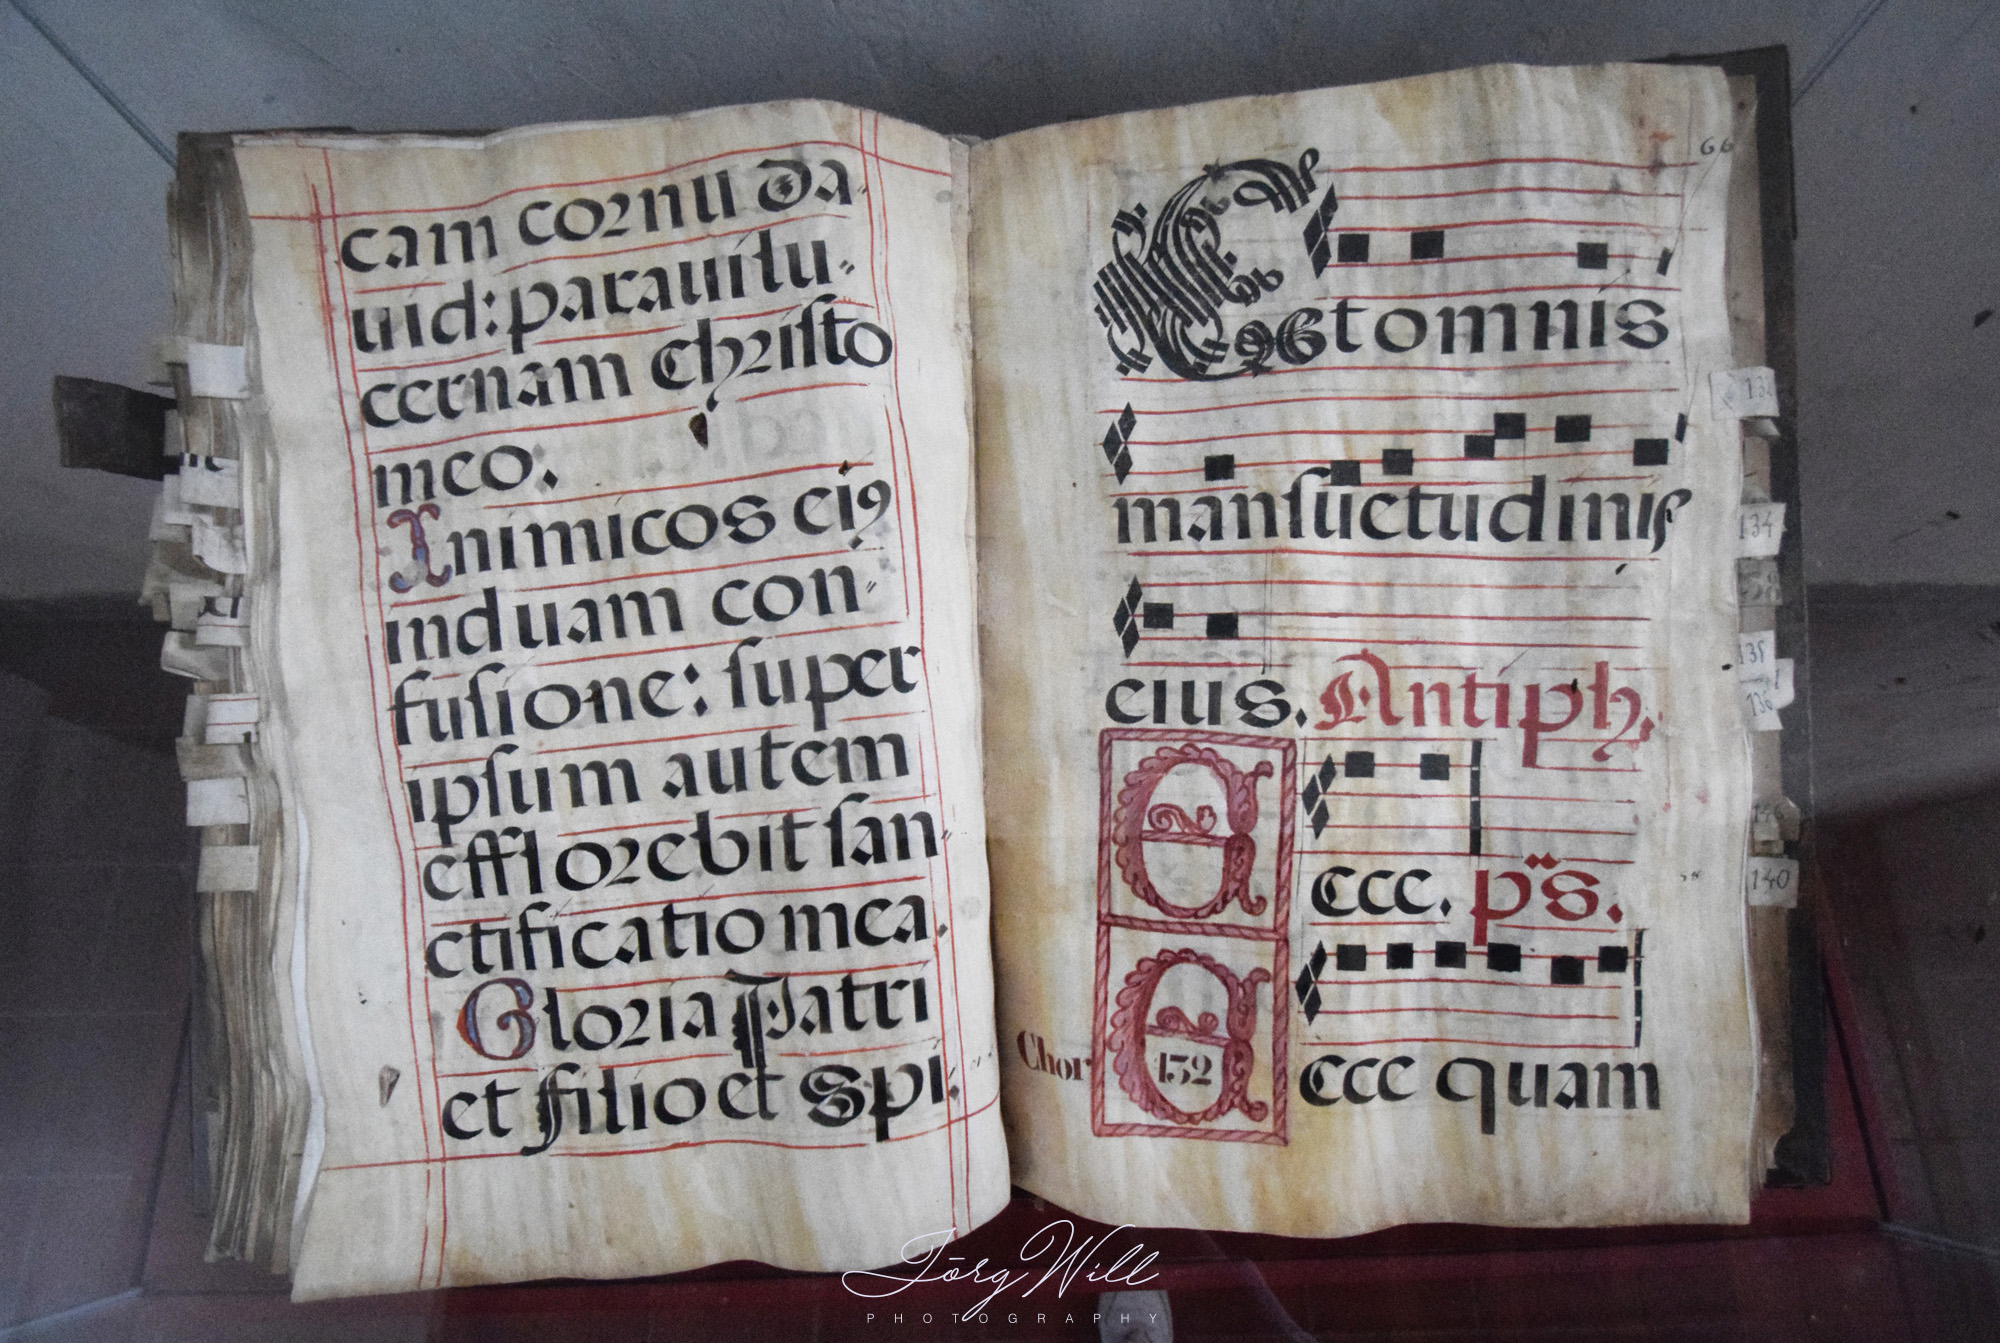 cam cornu da-
uid: paraui lu-
cernam Christo
meo.
Inimicos eiꝰ
induam con-
fusione: super
ipsum autem
efflorebit san-
ctificatio mea.
Gloria Patri
et filio et Spi.
66
Et omnis
mansuetudinis
eius. Antiph.
Ecce. ps.
Chor
132
Ecce quam
134
135
136
140
Jörg Will
PHOTOGRAPHY